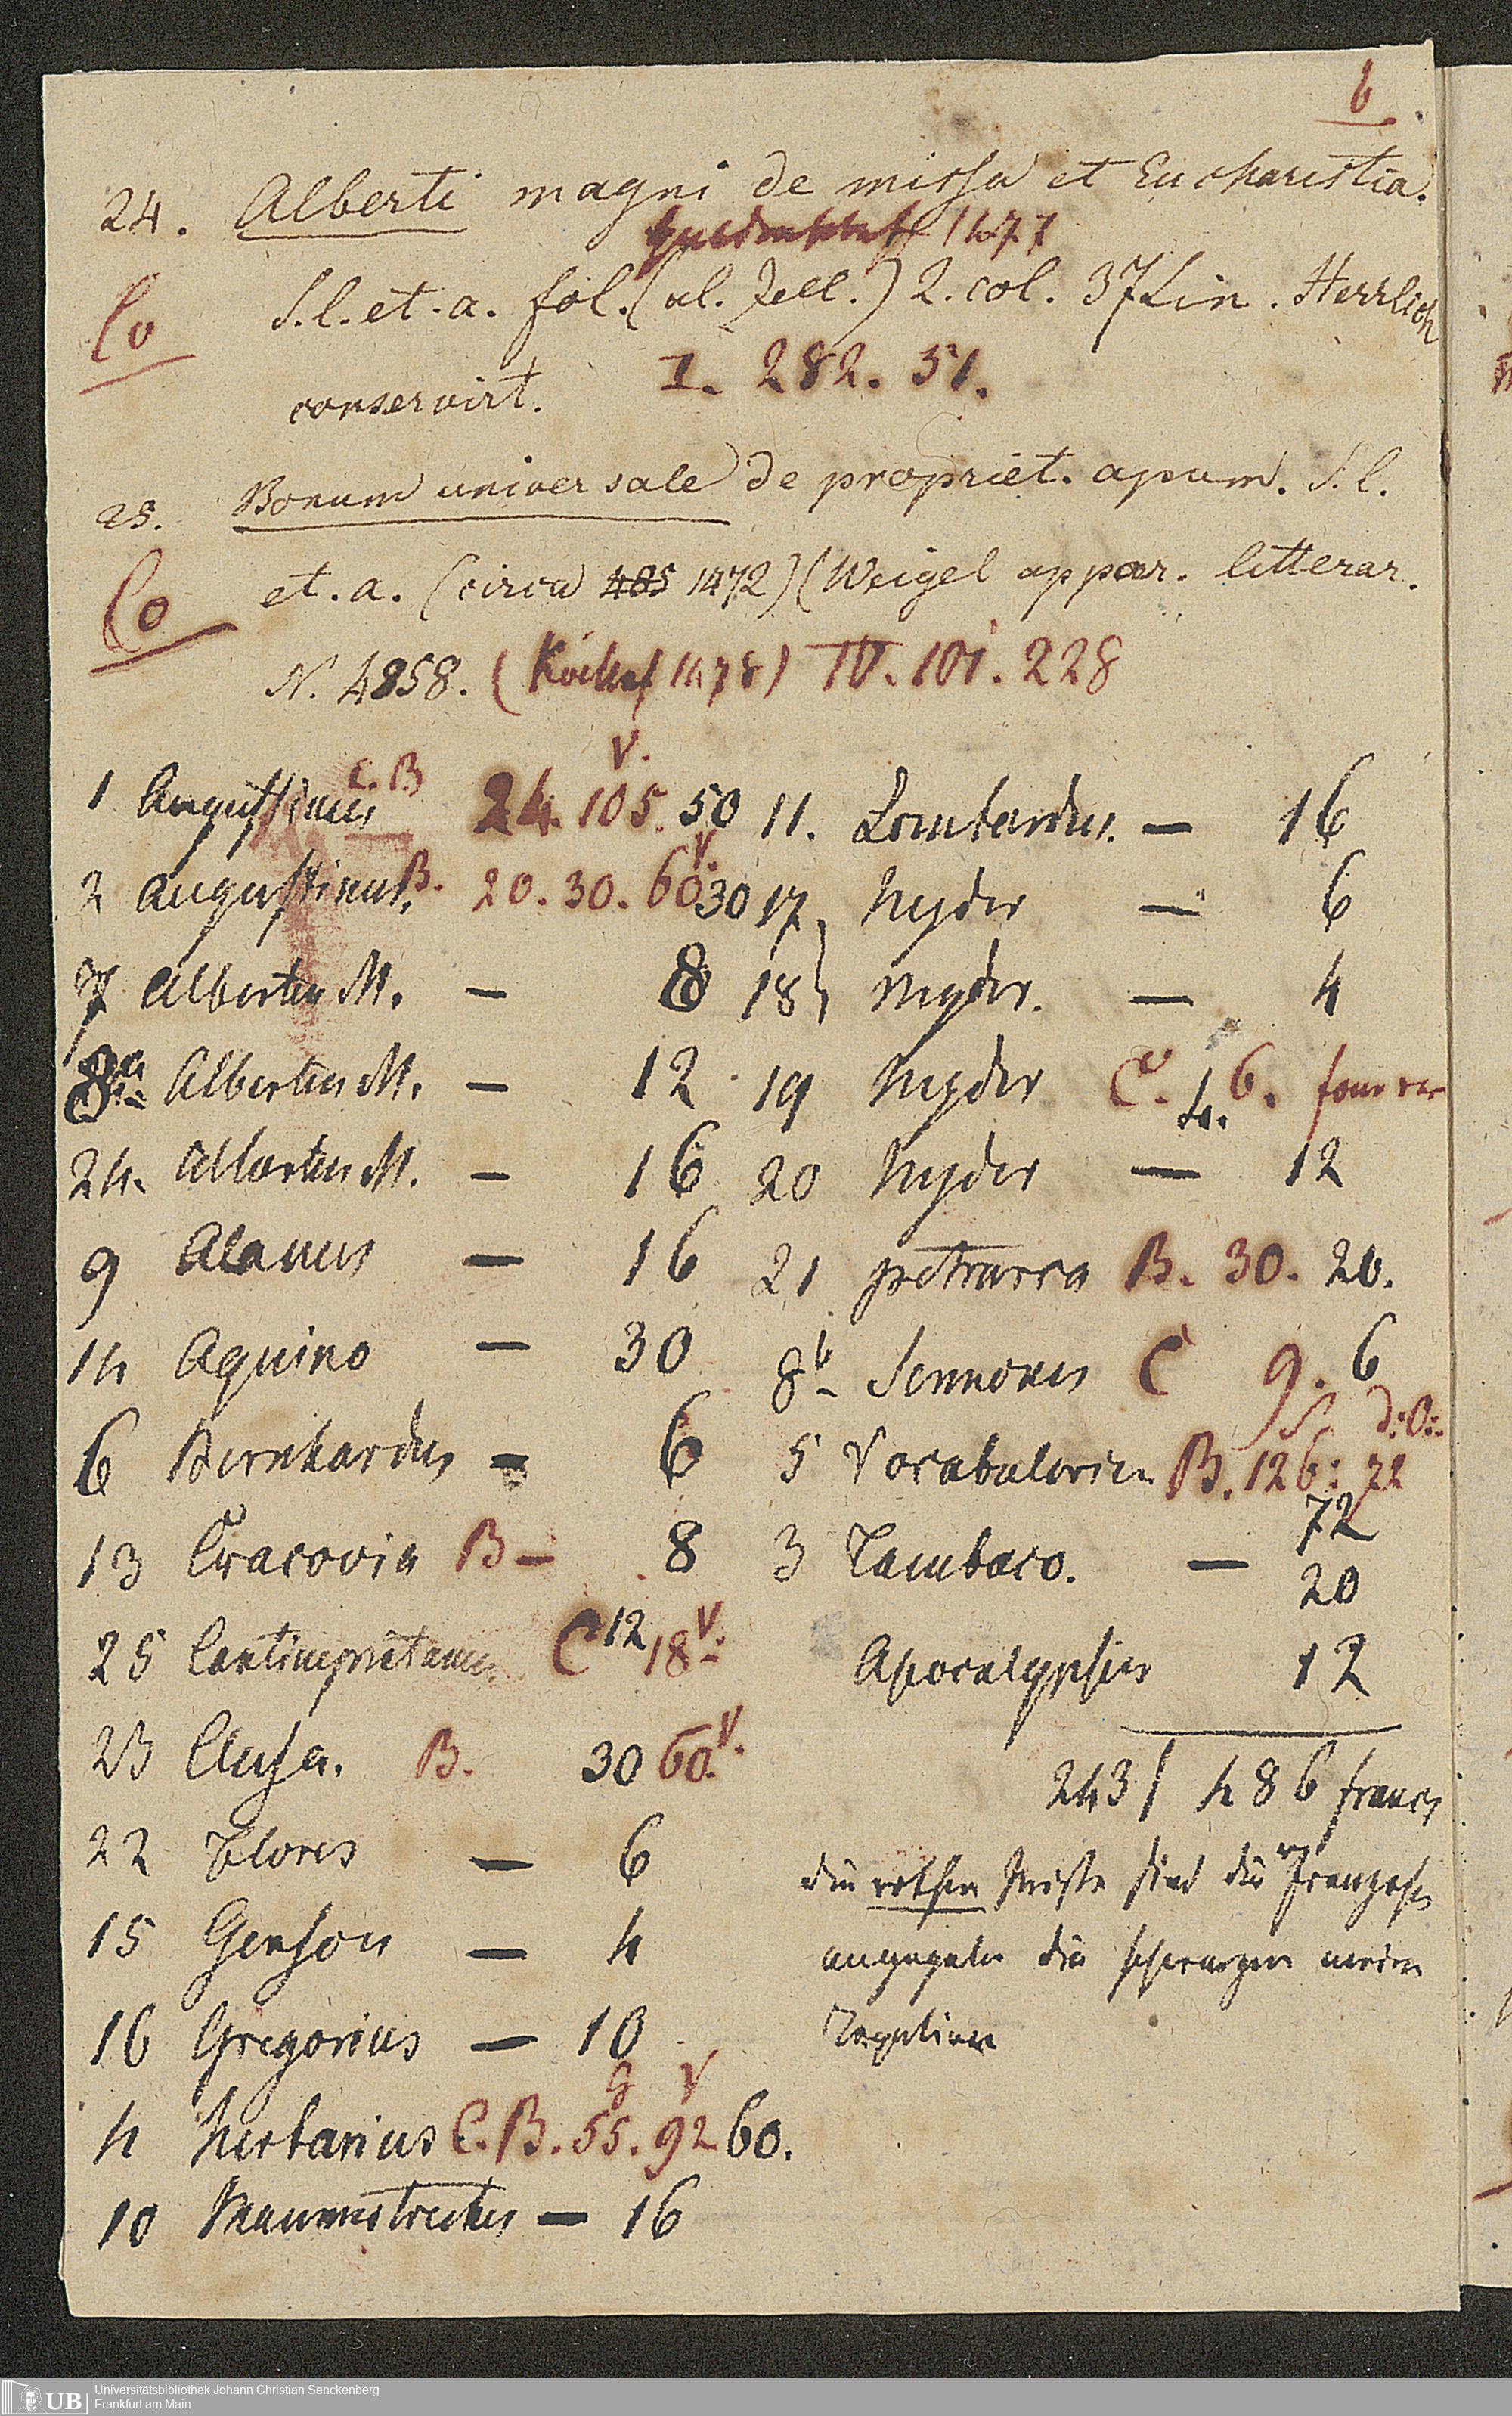 6
24. Alberti magni de missa et Eucharistia.
1477
Co S.l. et. a. fol. (al. Zell.) 2. col. 37 Lin. Herrlich
conservirt. I. 282. 51.
25. Bonum universale de propriet. apum. S.l.
Co et. a. (circa 485 1472) (Weigel appar. litterar.
N. 4858. (Kölhof 1478) IV. 101. 228
1 Augustinus C. B 24. 105. V. 50
2 Augustinus. B. 20. 30. 60 V. 30
7 Albertus M. — 8
8a Albertus M. — 12
24. Albertus M. — 16
9 Alanus — 16
14 Aquino — 30
6 Bernhardus — 6
13 Cracovia B — 8
25 Cantimpratanus C 12 18 V.
23 Cusa. B. 30 60. V.
22 Flores — 6
15 Gerson — 4
16 Gregorius — 10
4 Herbarius C. B. 55. G 92 V 60.
10 Mammotrectus — 16
11. Lombardus. — 16
17 Nyder — 6
18 Nyder. — 4
19 Nyder C. 4. 6.
20 Nyder — 12
21 Petrarca B. 30. 20.
8b Sermones C 9. 6
5 Vocabularien B. 126: 72
72
3 Tambaco. — 20
Apocalypsis 12
243 | 486 francs
die rothen Preise sind die v Franzosen
angegeben die schwarzen meine
Taxation
Universitätsbibliothek Johann Christian Senckenberg
Frankfurt am Main
UB